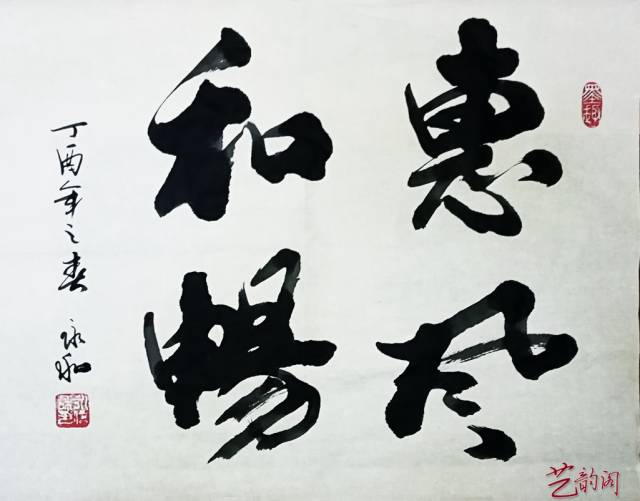 惠風
和暢
丁酉年之春 永和
艺韵阁